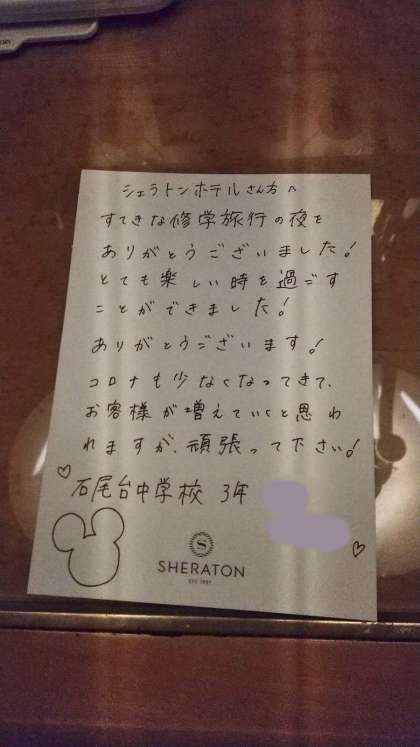 シェラトンホテルさん方へ
すてきな修学旅行の夜を
ありがとうございました!
とても楽しい時を過ごす
ことができました!
ありがとうございます!
コロナも少なくなってきて、
お客様が増えていくと思わ
れますが、頑張って下さい!
石尾台中学校 3年
S
SHERATON
EST 1937